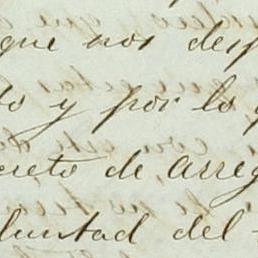 que nos desp
do y por lo q
creto de arreg
luntad del